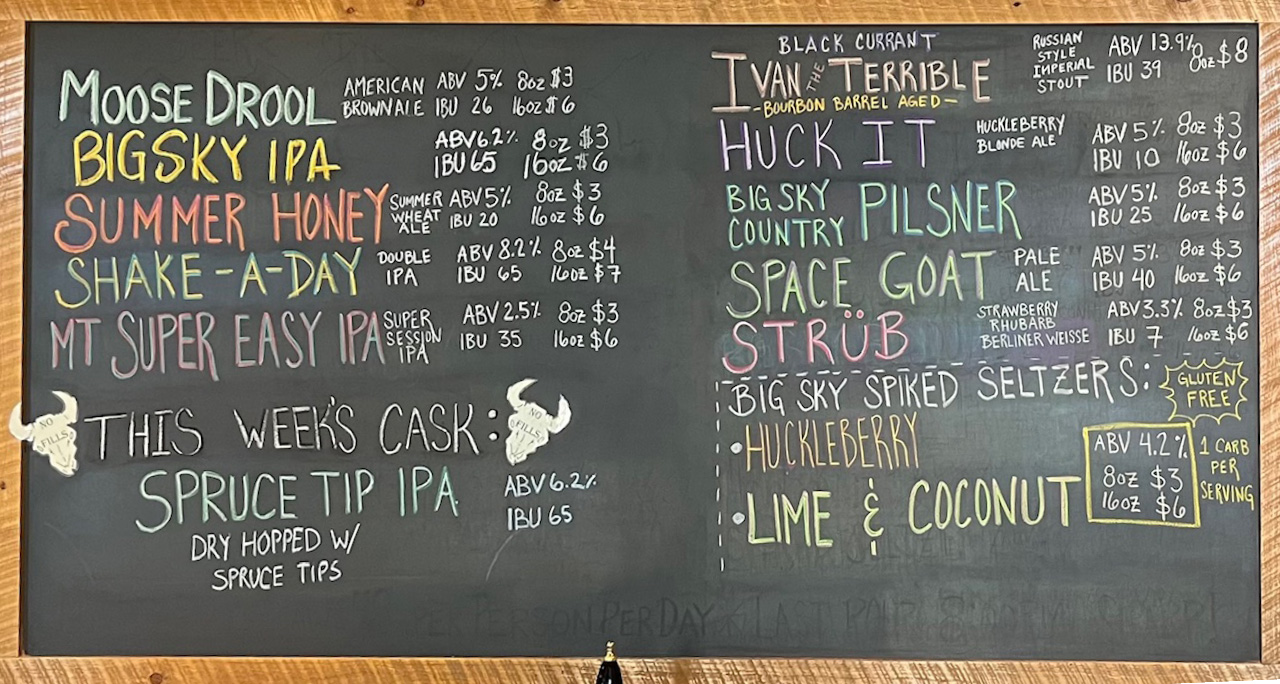 MOOSE DROOL AMERICAN BROWN ALE ABV 5% 8oz $3
IBU 26 16oz $6
BIG SKY IPA ABV 6.2% 8oz $3
IBU 65 16oz $6
SUMMER HONEY SUMMER WHEAT ALE ABV 5% 8oz $3
IBU 20 16oz $6
SHAKE-A-DAY DOUBLE IPA ABV 8.2% 8oz $4
IBU 65 16oz $7
MT SUPER EASY IPA SUPER SESSION IPA ABV 2.5% 8oz $3
IBU 35 16oz $6
NO FILLS
THIS WEEK'S CASK:
NO FILLS
SPRUCE TIP IPA ABV 6.2%
IBU 65
DRY HOPPED W/
SPRUCE TIPS
BLACK CURRANT
IVAN THE TERRIBLE RUSSIAN STYLE IMPERIAL STOUT ABV 13.9% 8oz $8
IBU 39
-BOURBON BARREL AGED-
HUCK IT HUCKLEBERRY BLONDE ALE ABV 5% 8oz $3
IBU 10 16oz $6
BIG SKY COUNTRY PILSNER ABV 5% 8oz $3
IBU 25 16oz $6
SPACE GOAT PALE ALE ABV 5% 8oz $3
IBU 40 16oz $6
STRÜB STRAWBERRY RHUBARB BERLINER WEISSE ABV 3.3% 8oz $3
IBU 7 16oz $6
BIG SKY SPIKED SELTZERS: GLUTEN FREE
• HUCKLEBERRY
• LIME & COCONUT
ABV 4.2%
8oz $3
16oz $6
1 CARB
PER
SERVING
PERSON PER DAY LAST